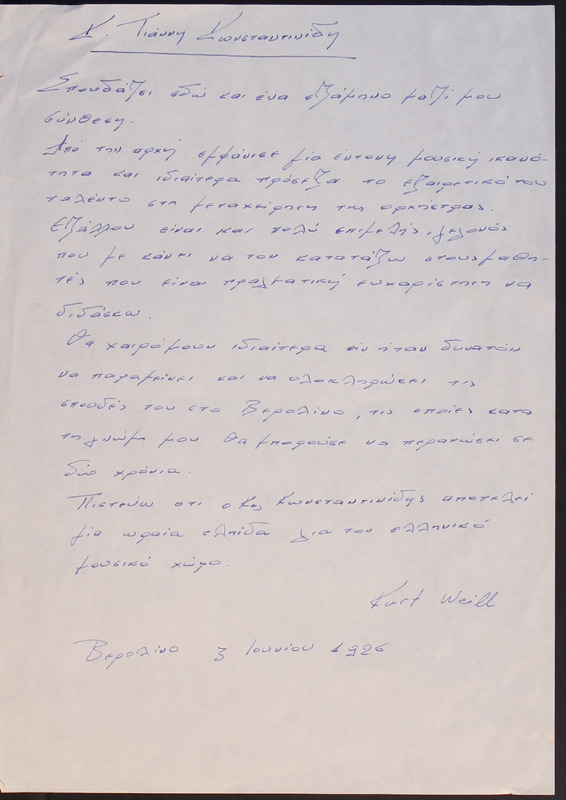 Κ. Γιάννη Κωνσταντινίδη
Σπουδάζει εδώ και ένα εξάμηνο μαζί μου
σύνθεση.
Από την αρχή εμφάνισε μία έντονη μουσική ικανό-
τητα και ιδιαίτερα πρόσεξα το εξαιρετικό του
ταλέντο στη μεταχείρηση της ορχήστρας.
Εξάλλου είναι και πολύ επιμελής, γεγονός
που με κάνει να τον κατατάξω στους μαθη-
τές που είναι πραγματική ευχαρίστηση να
διδάσκω.
Θα χαιρόμουν ιδιαίτερα αν ήταν δυνατόν
να παραμείνει και να ολοκληρώσει τις
σπουδές του στο Βερολίνο, τις οποίες κατα
τη γνώμη μου θα μπορούσε να περατώσει σε
δύο χρόνια.
Πιστεύω οτι ο Κος Κωνσταντινίδης αποτελεί
μία ωραία ελπίδα για τον ελληνικό
μουσικό χώρο.
Kurt Weill
Βερολίνο 3 Ιουνίου 1926